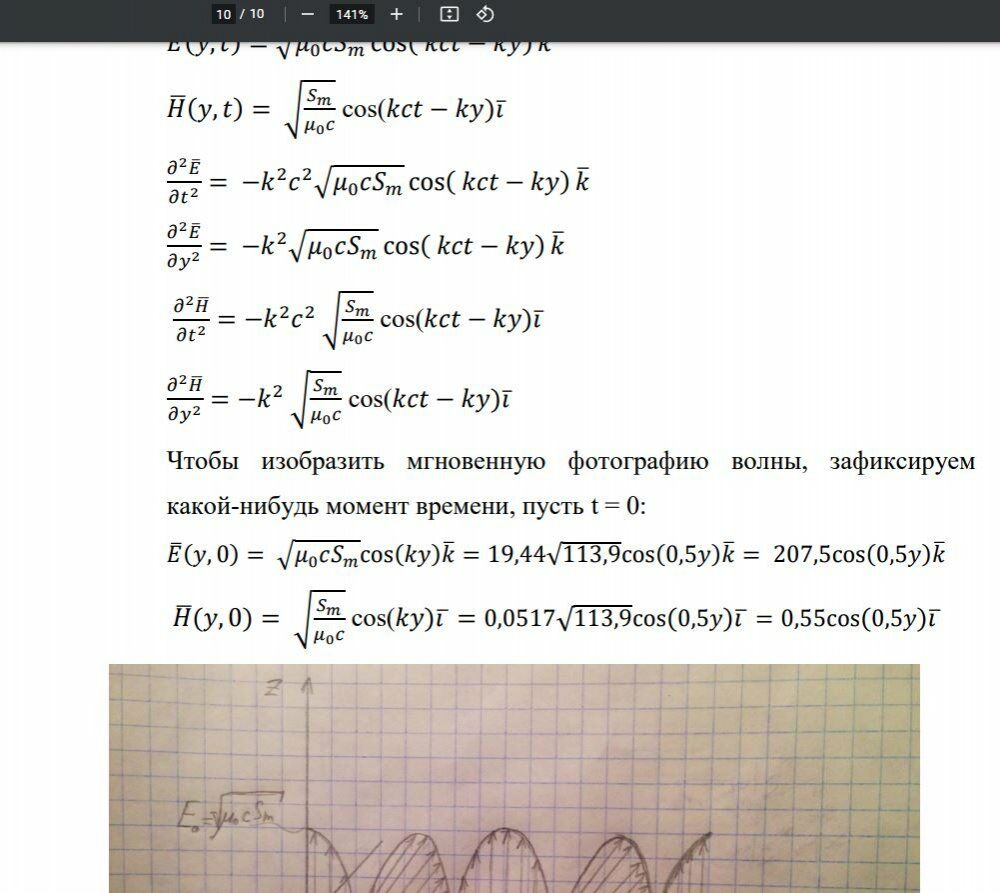 10 / 10 | — 141% + |
E̅(y,t) = √(μ₀cSₘ) cos( kct − ky) k̅
H̅(y, t) = √(Sₘ/(μ₀c)) cos(kct − ky)ı̅
∂²E̅/∂t² = −k²c²√(μ₀cSₘ) cos( kct − ky) k̅
∂²E̅/∂y² = −k²√(μ₀cSₘ) cos( kct − ky) k̅
∂²H̅/∂t² = −k²c² √(Sₘ/(μ₀c)) cos(kct − ky)ı̅
∂²H̅/∂y² = −k² √(Sₘ/(μ₀c)) cos(kct − ky)ı̅
Чтобы изобразить мгновенную фотографию волны, зафиксируем
какой-нибудь момент времени, пусть t = 0:
E̅(y, 0) = √(μ₀cSₘ)cos(ky)k̅ = 19,44√113,9cos(0,5y)k̅ = 207,5cos(0,5y)k̅
H̅(y, 0) = √(Sₘ/(μ₀c)) cos(ky)ı̅ = 0,0517√113,9cos(0,5y)ı̅ = 0,55cos(0,5y)ı̅
Z
E₀=√(μ₀cSₘ)